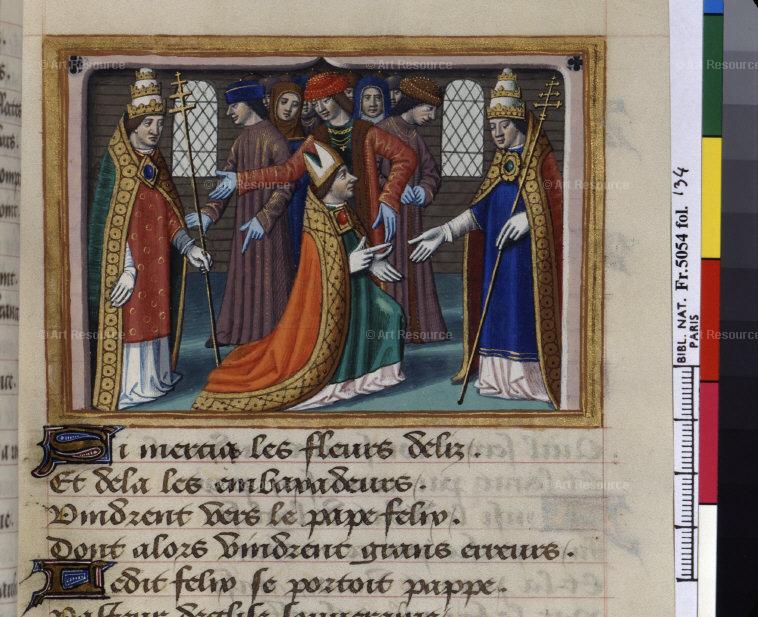 © Art Resource © Art Resource © Art Resource
© Art Resource © Art Resource © Art Resource
© Art Resource © Art Resource © Art Resource
Si mercia les fleurs deliz.
Et dela les embaxadeurs.
© Art Resource
Vindrent vers le pape felix.
Dont alors vindrent grans erreurs.
Ledit felix se portoit pappe.
Pasteur deglise
BIBL. NAT. Fr.5054 fol. 134
PARIS